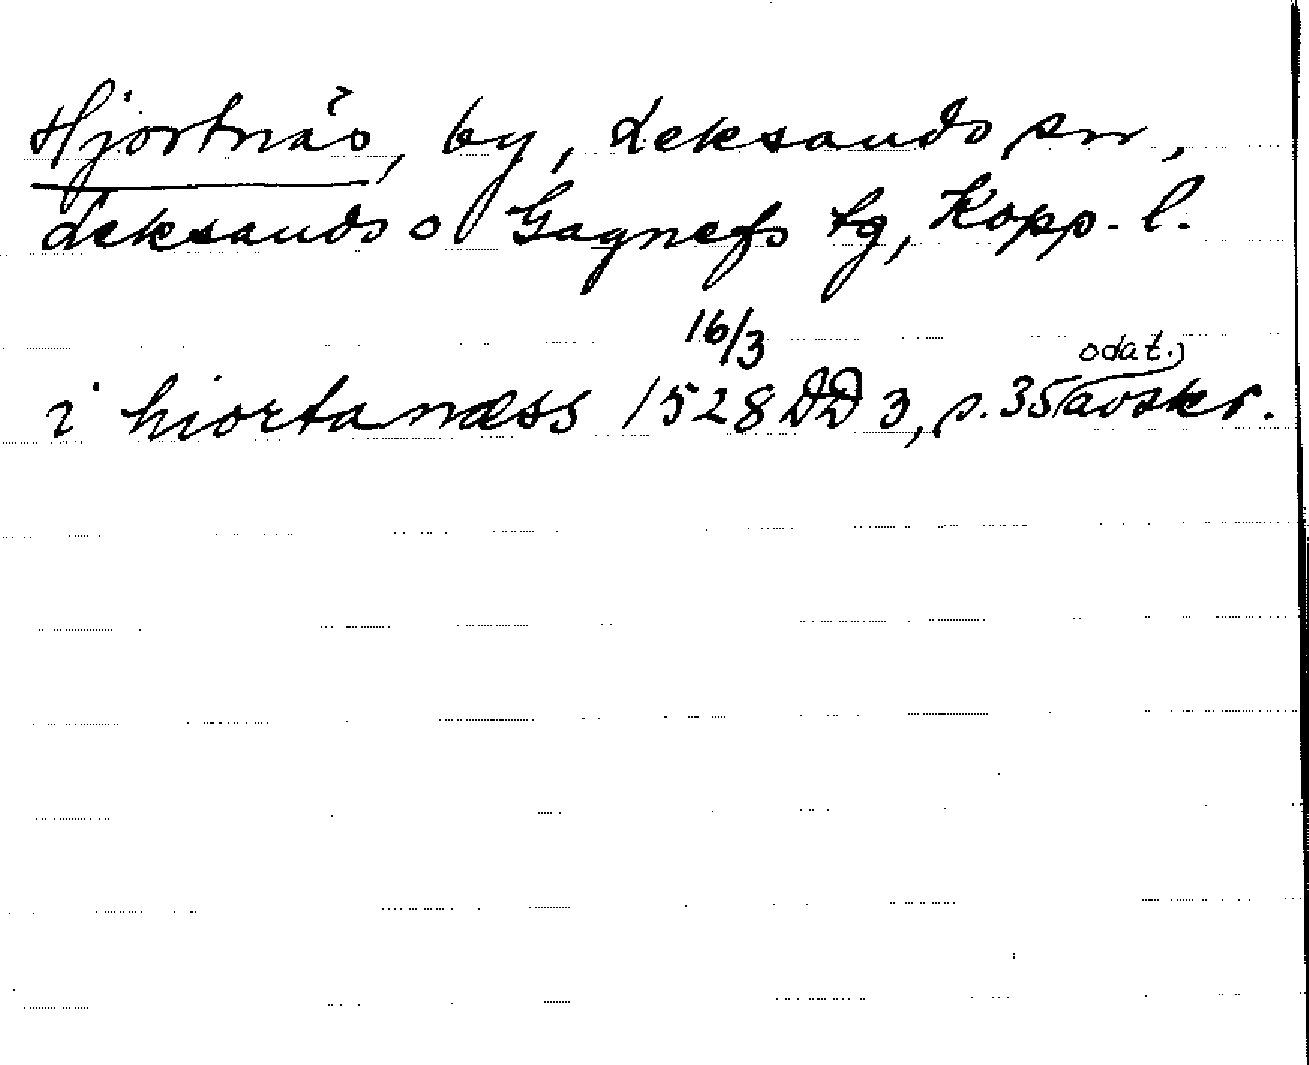 Hjortnäs, by, Leksands sn,
Leksands o Gagnefs tg, Kopp. l.
16/3 odat.
i hiortanæss 1528 DD 3, s. 35 avskr.